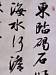 東臨碣石
海水何澹